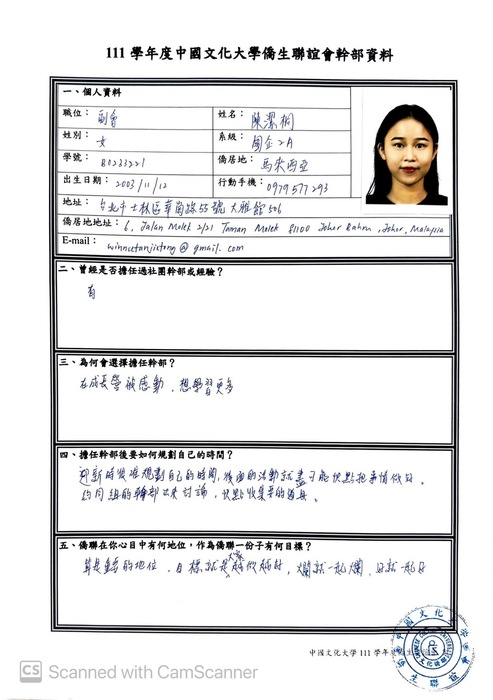 111 學年度中國文化大學僑生聯誼會幹部資料
一、個人資料
職位： 副會 姓名： 陳潔桐
性別： 女 系級： 國企2A
學號： B0233221 僑居地： 馬來西亞
出生日期： 2003/11/12 行動手機： 0979577293
地址： 台北市士林區華岡路55號 大雅館506
僑居地地址： 6, Jalan Molek 2/21 Taman Molek 81100 Johor Bahru, Johor, Malaysia
E-mail： winnietanjietong@gmail.com
二、曾經是否擔任過社團幹部或經驗？
有
三、為何會選擇擔任幹部？
在成長營被感動，想學習更多
四、擔任幹部後要如何規劃自己的時間？
迎新時很難規劃自己的時間，後面的活動就盡可能快點把事情做好。
約同組的幹部出來討論，快點收集要的
五、僑聯在你心目中有何地位，作為僑聯一份子有何目標？
算是 的地位，目標就是大家 ，爛就一起爛，好就一起好
中國文化大學 111 學年度
CS Scanned with CamScanner